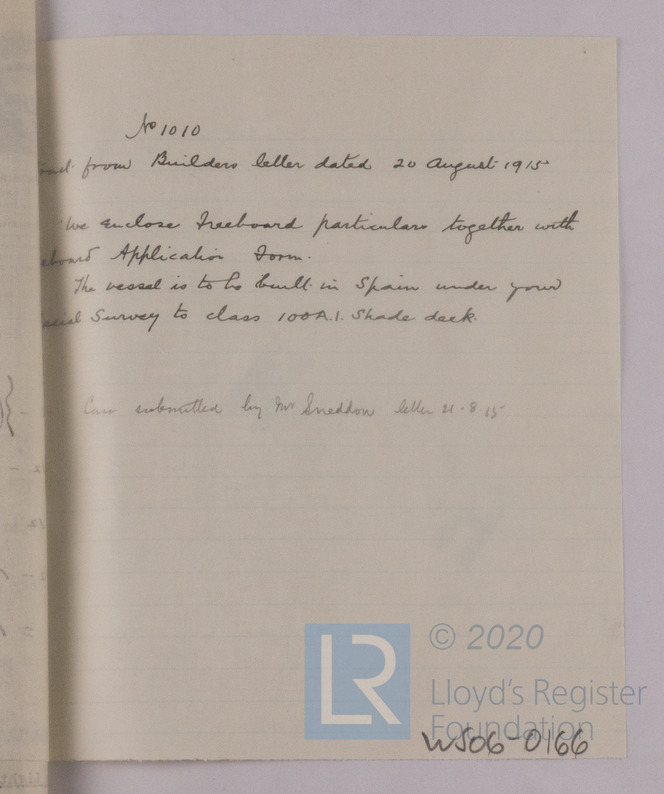 No 1010
from Builders letter dated 20 August 1915
We enclose Freeboard particulars together with
eboard Application Form.
The vessel is to be built in Spain under your
ecial Survey to class 100A.1. Shade deck.
Case submitted by Mr Sneddon letter 21.8.15
© 2020
LR
Lloyd's Register
Foundation
WS06-0166